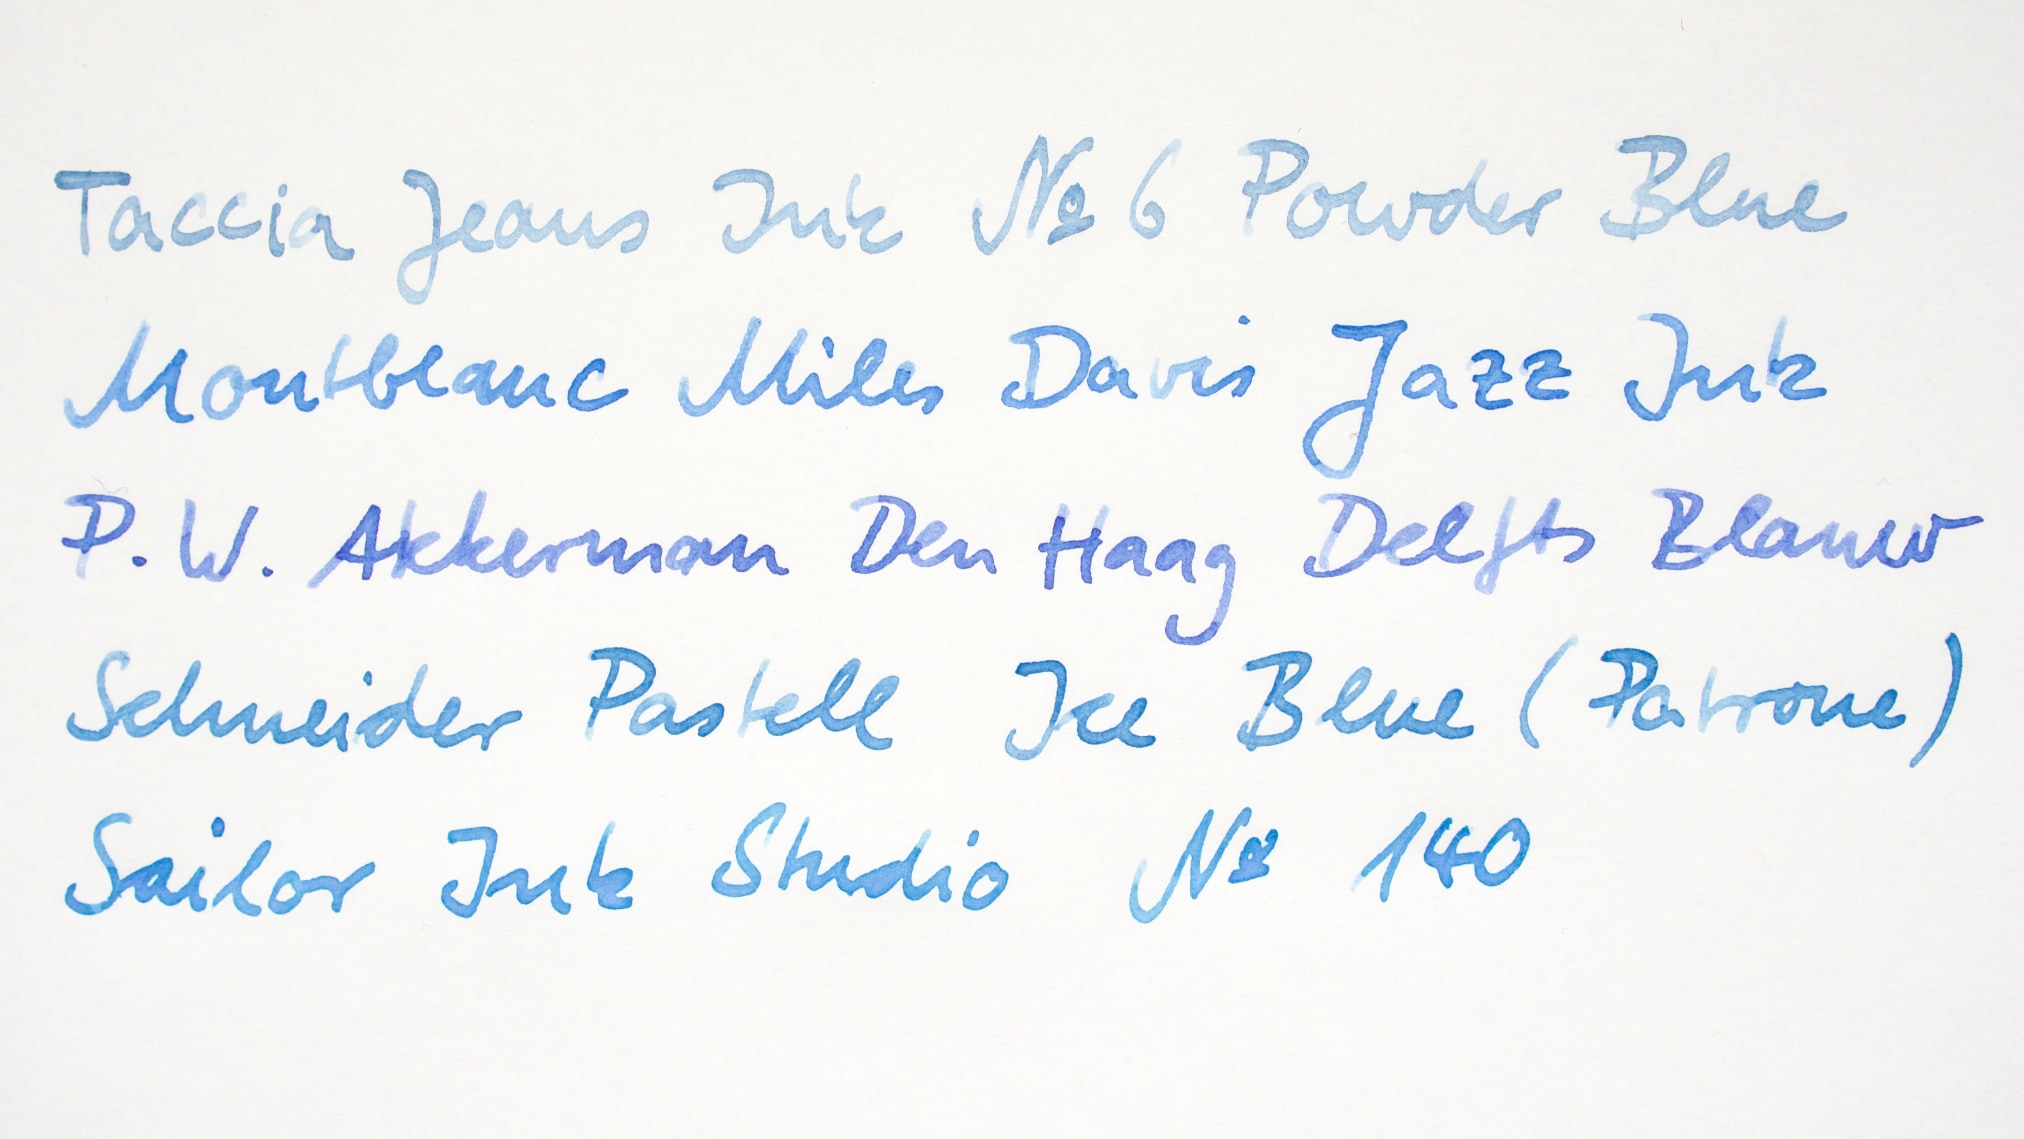 Taccia Jeans Ink № 6 Powder Blue
Montblanc Miles Davis Jazz Ink
P. W. Akkerman Den Haag Delfts Blauw
Schneider Pastell Ice Blue (Patrone)
Sailor Ink Studio № 140